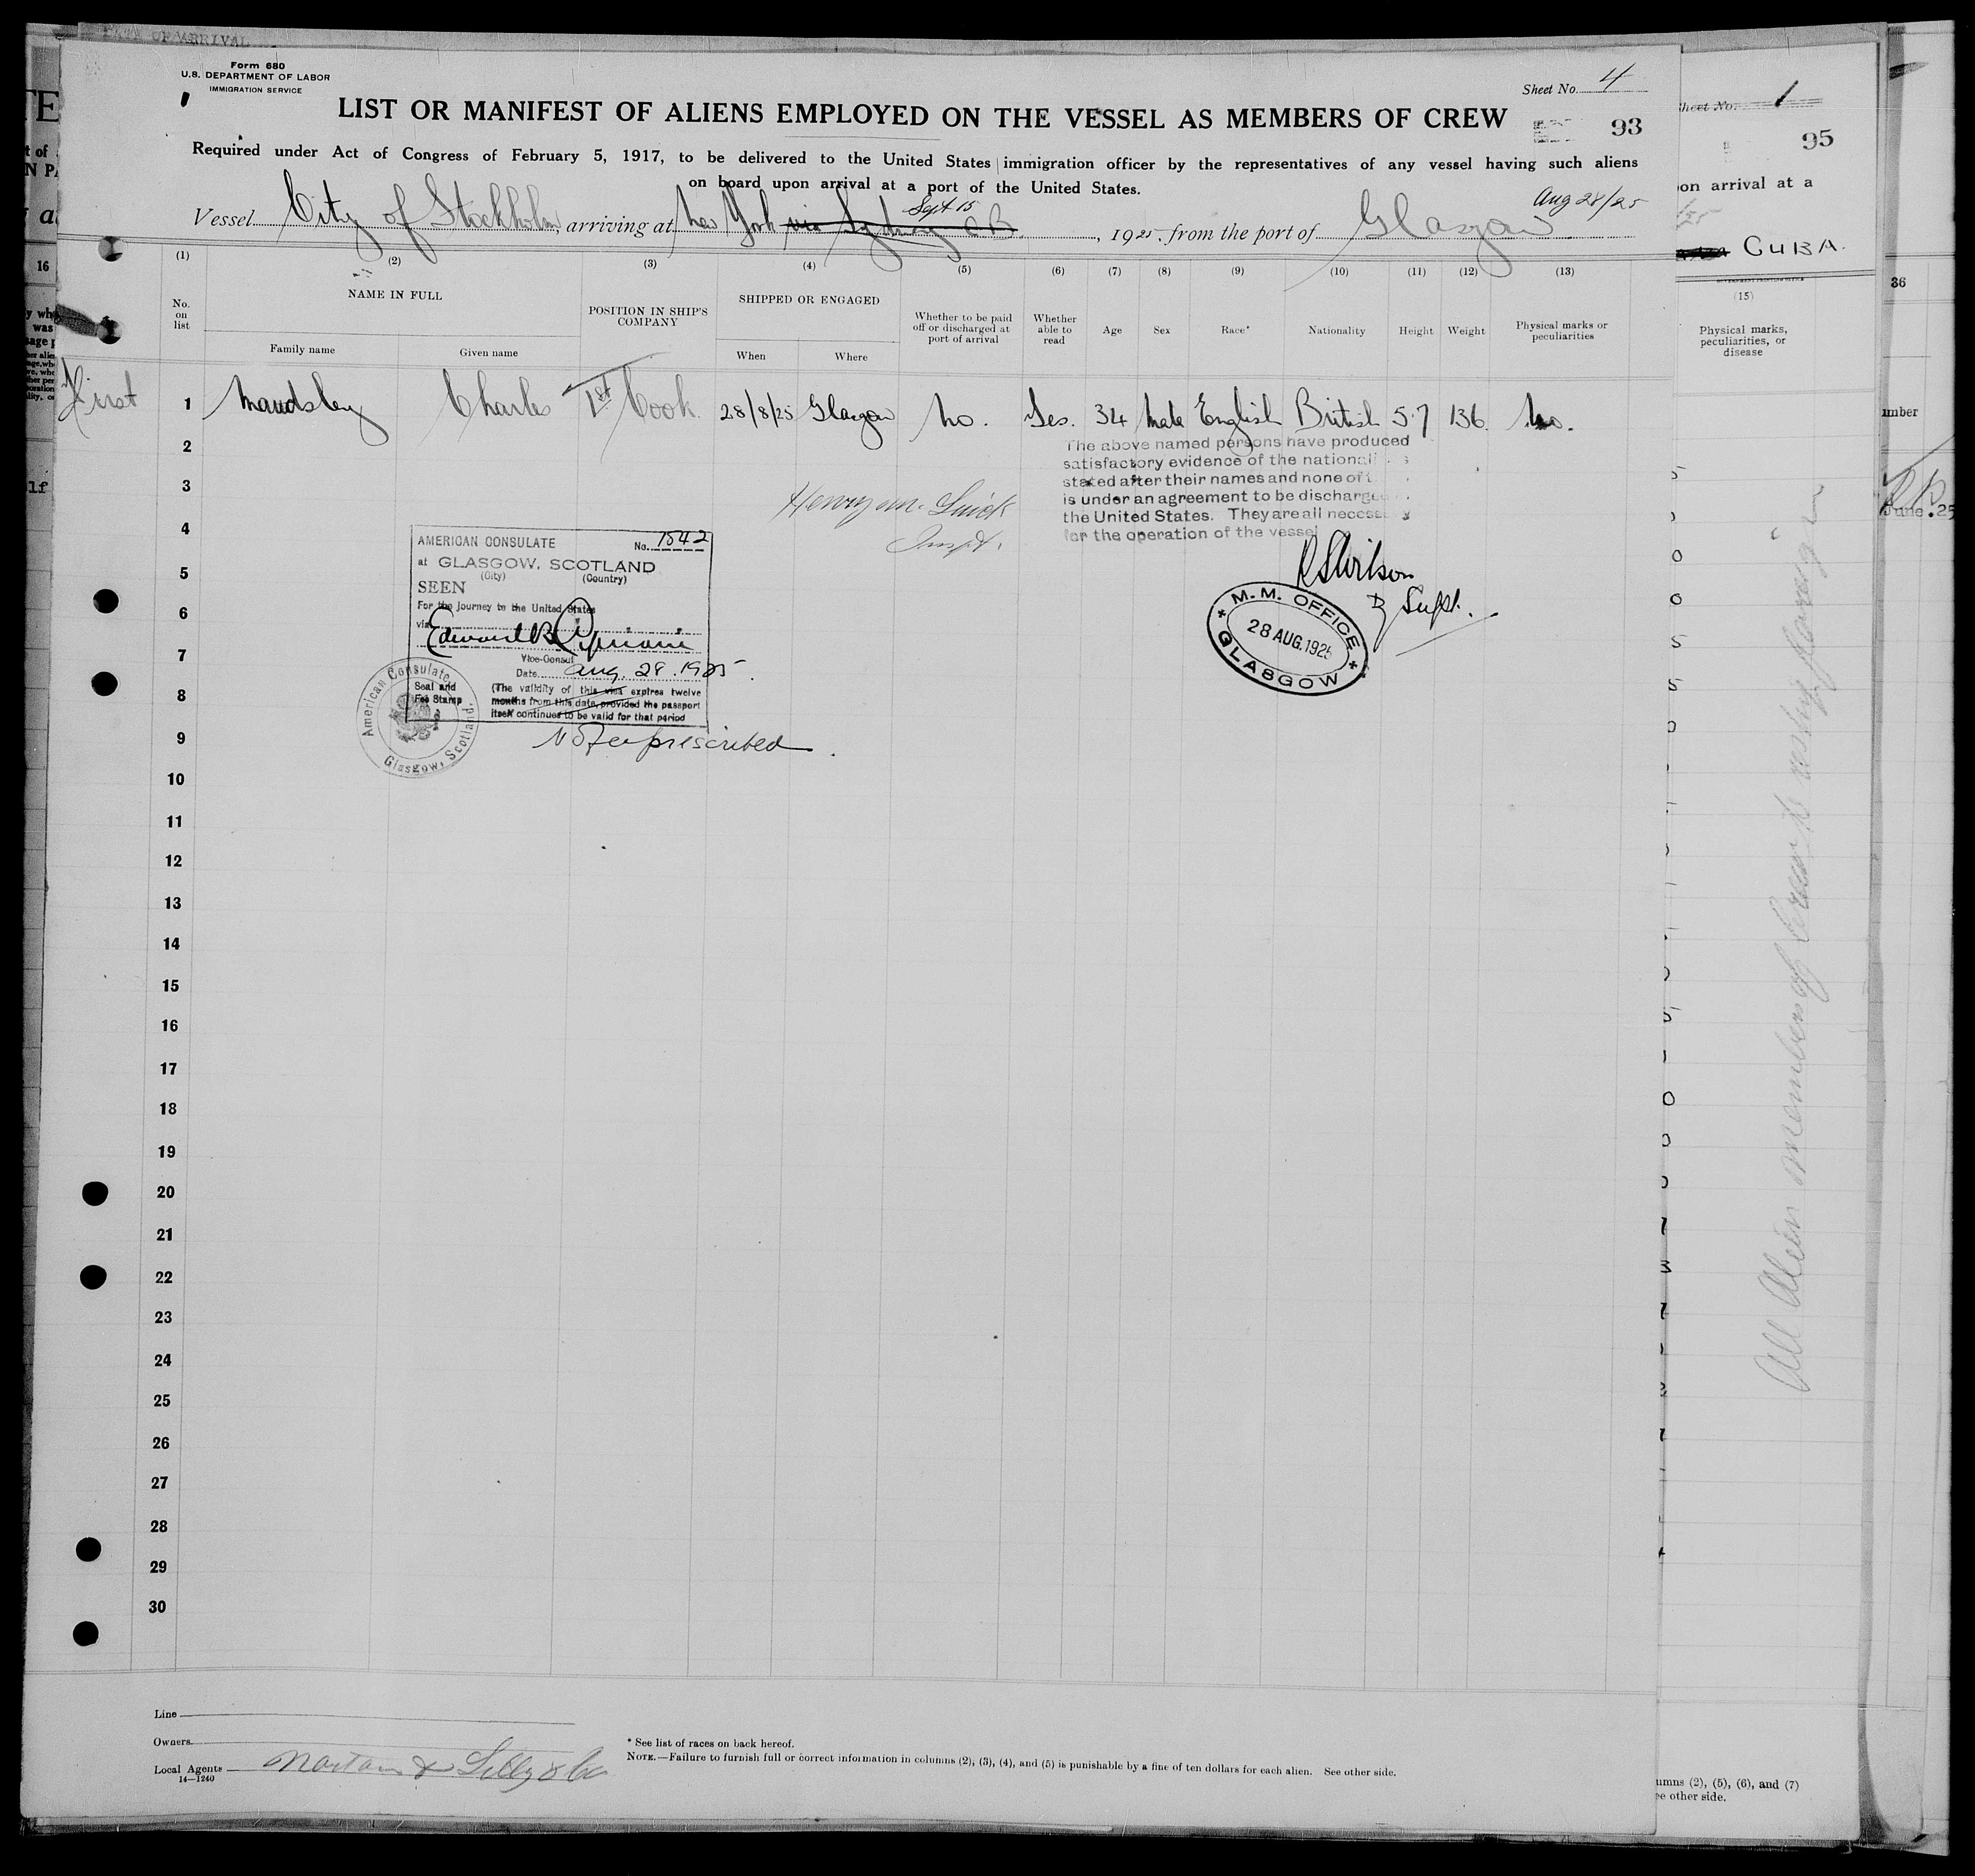 DATE OF ARRIVAL
Form 680
U.S. DEPARTMENT OF LABOR
IMMIGRATION SERVICE
Sheet No. 4
LIST OR MANIFEST OF ALIENS EMPLOYED ON THE VESSEL AS MEMBERS OF CREW
93
Required under Act of Congress of February 5, 1917, to be delivered to the United States immigration officer by the representatives of any vessel having such aliens
on board upon arrival at a port of the United States.
Sept 15
Aug 28/25
Vessel City of Stockholm, arriving at New York via Sydney C B, 1925, from the port of Glasgow
(1) (2) (3) (4) (5) (6) (7) (8) (9) (10) (11) (12) (13)
No. on list
NAME IN FULL
Family name
Given name
POSITION IN SHIP'S COMPANY
SHIPPED OR ENGAGED
When
Where
Whether to be paid off or discharged at port of arrival
Whether able to read
Age
Sex
Race*
Nationality
Height
Weight
Physical marks or peculiarities
First 1 Maudsley Charles 1st Cook. 28/8/25 Glasgow No. Yes. 34 Male English British 5·7 136. No.
2
The above named persons have produced
satisfactory evidence of the nationali s
stated after their names and none of t
is under an agreement to be discharge
the United States. They are all necess y
for the operation of the vessel
3
4
5
6
7
8
9
10
11
12
13
14
15
16
17
18
19
20
21
22
23
24
25
26
27
28
29
30
Inspt.
AMERICAN CONSULATE No. 1542
at GLASGOW, SCOTLAND
(City) (Country)
SEEN
For the journey to the United States
via
Vice-Consul
Date Aug. 28. 1925.
Seal and Fee Stamp
(The validity of this visa expires twelve
months from this date, provided the passport
itself continues to be valid for that period
American Consulate
Glasgow, Scotland.
No fee prescribed.
R S Wilson
D Supt.
M. M. OFFICE
28 AUG. 1925
GLASGOW
Line
Owners
Local Agents Norton & Lilly & Co
14—1240
* See list of races on back hereof.
NOTE.—Failure to furnish full or correct information in columns (2), (3), (4), and (5) is punishable by a fine of ten dollars for each alien. See other side.
Sheet No. 1
95
on arrival at a
CUBA.
GOVERNMENT PRINTING OFFICE
(15)
Physical marks,
peculiarities, or
disease
All Alien members of
umns (2), (5), (6), and (7)
ee other side.
36
mber
June. 25
16